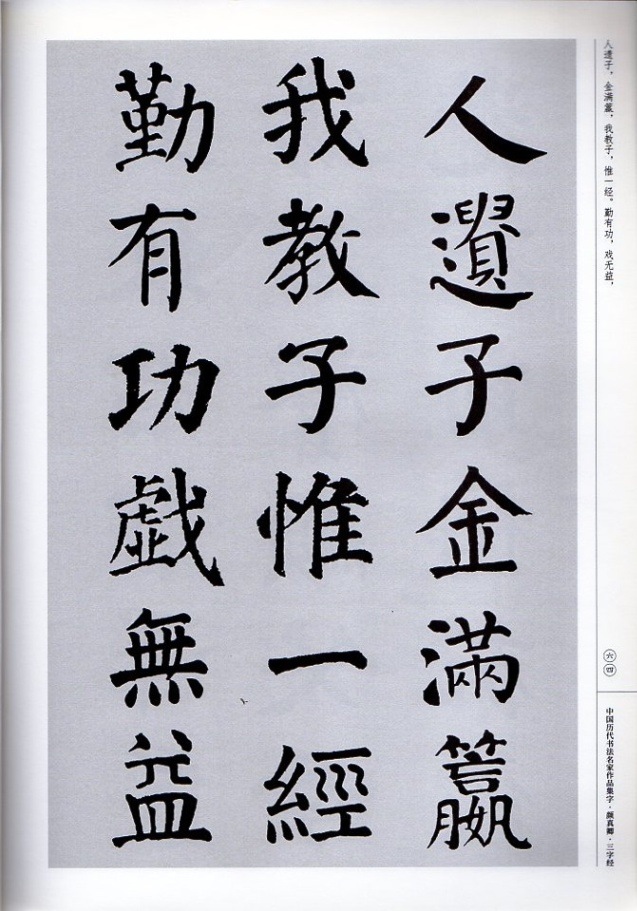 人遗子，金满籝，我教子，惟一经。勤有功，戏无益，
六四
中国历代书法名家作品集字·颜真卿·三字经
人遺子金滿籝
我教子惟一經
勤有功戲無益